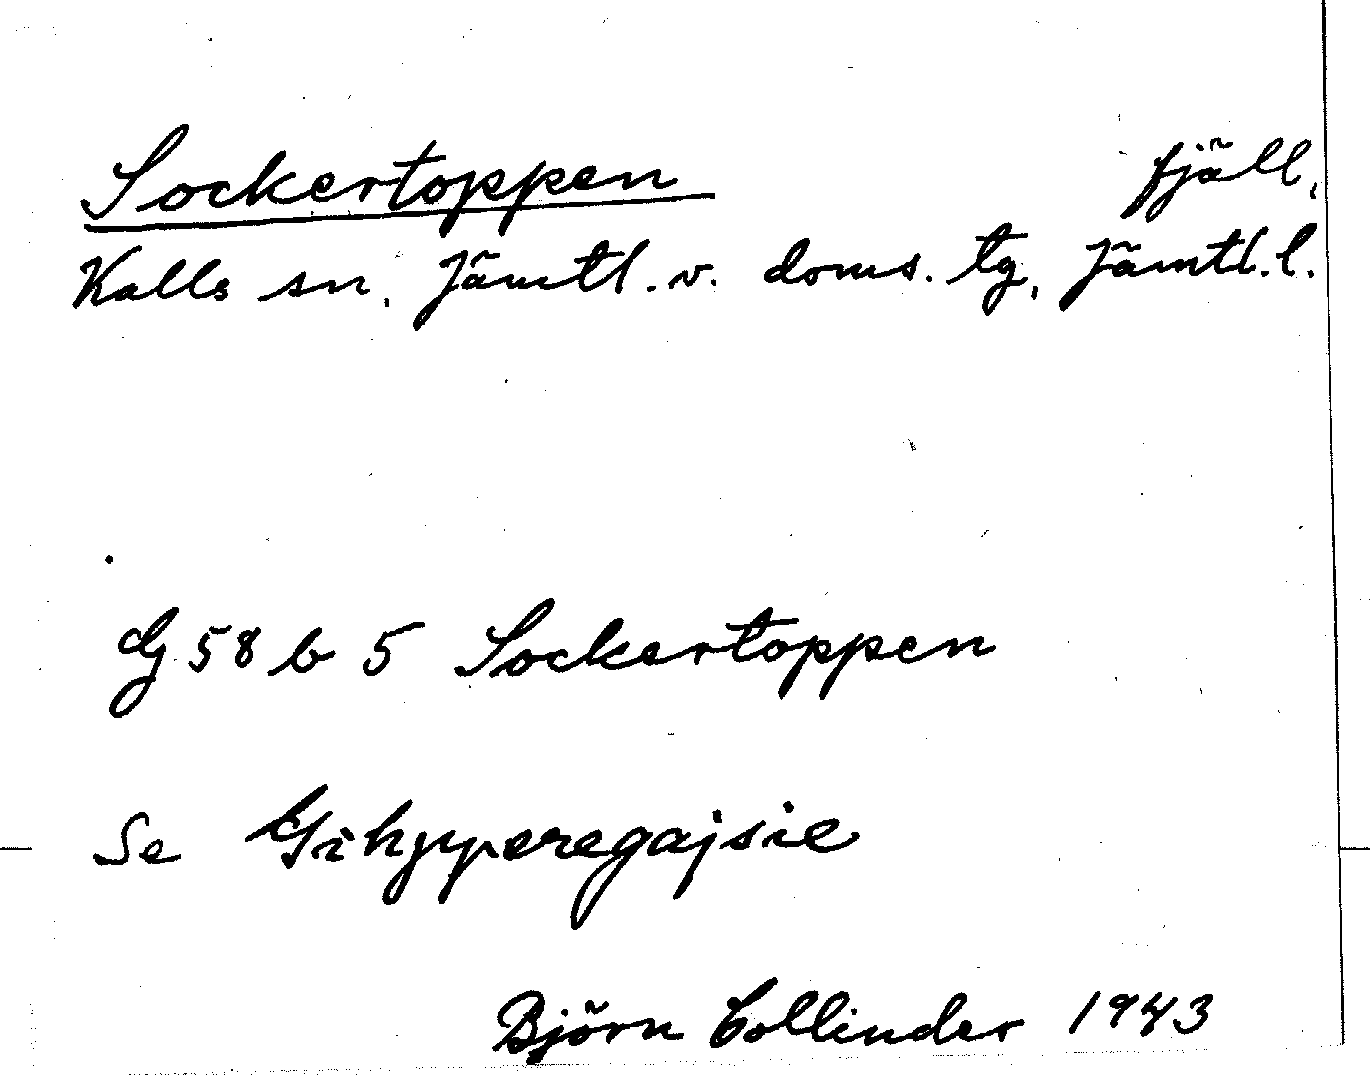 Sockertoppen fjäll,
Kalls sn, Jämtl. v. doms. tg, Jämtl. l.
G 58 b 5 Sockertoppen
Se Gihpperegajsie
Björn Collinder 1943